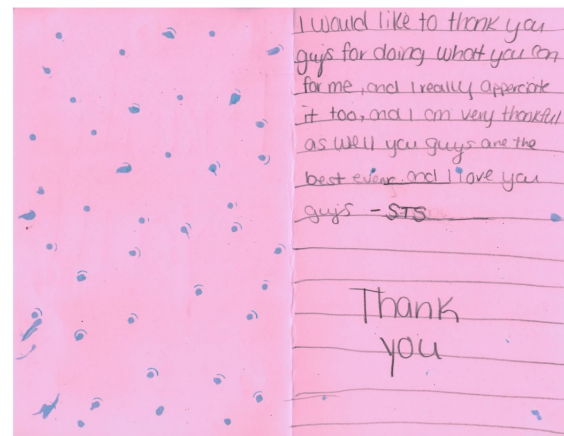 I would like to thank you
guys for doing whatt you can
for me, and I really apperciate
it too, and I am very thankful
as well you guys are the
best ever, and I love you
guys - STS
Thank
you